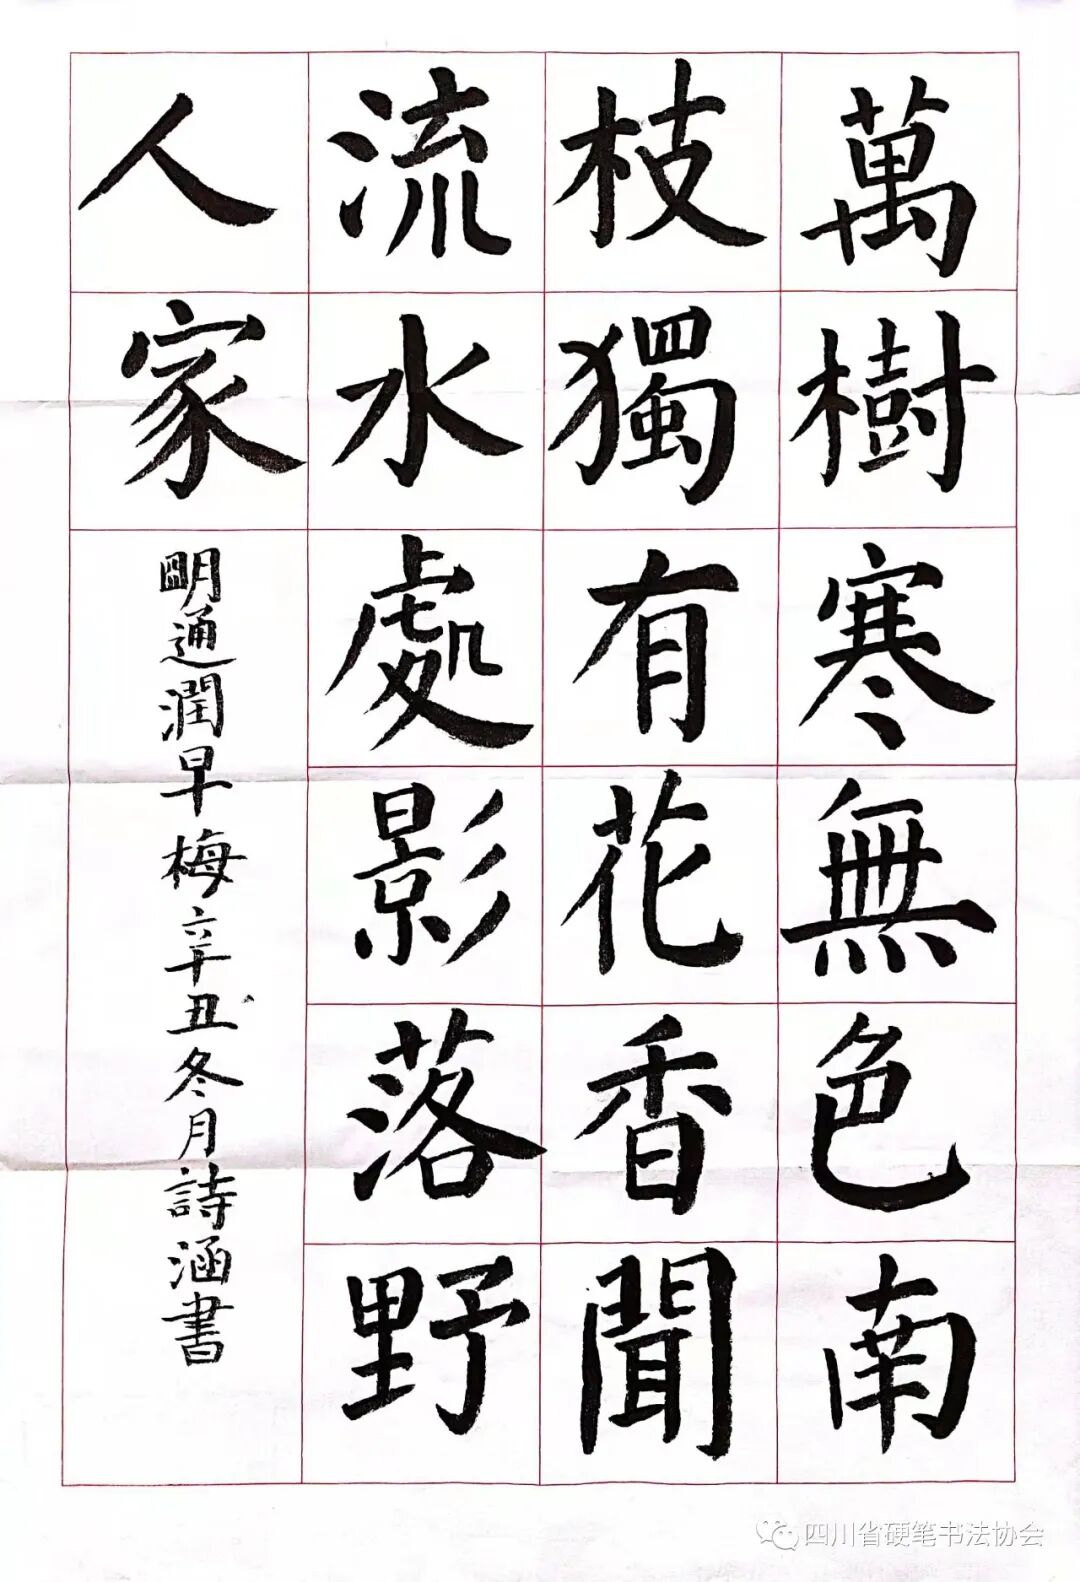 萬樹寒無色南
枝獨有花香聞
流水處影落野
人家
明通潤早梅辛丑冬月詩涵書
四川省硬笔书法协会